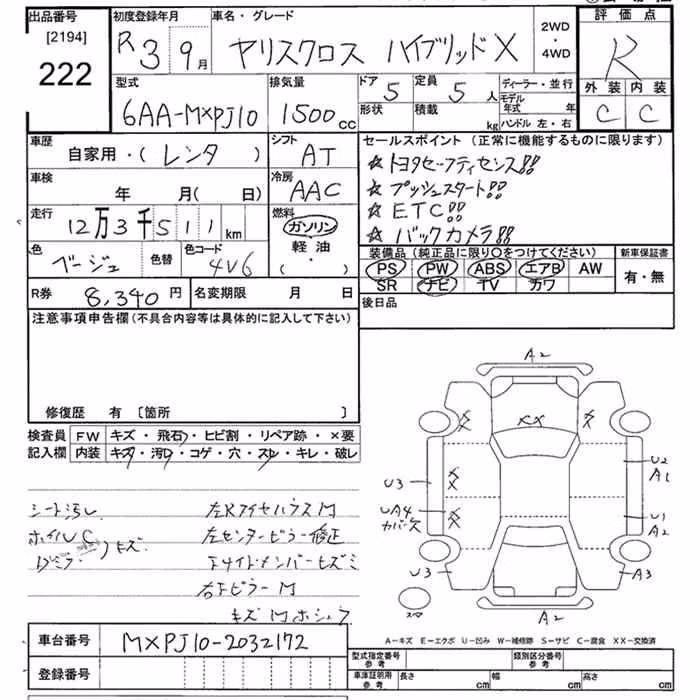 出品番号 初度登録年月 車名・グレード 2WD・4WD 評価点
[2194]
222
R 3 9月 ヤリスクロス ハイブリッドX R
外装 内装
C C
型式 排気量 ドア 定員 ディーラー・並行
6AA-MXPJ10 1500cc 5 5人
形状 積載 kg
モデル年式 年
ハンドル 左・右
車歴 シフト セールスポイント (正常に機能するものに限ります)
自家用・(レンタ) AT
☆トヨタセーフティセンス!!
車検 冷房
年 月(日) AAC
☆プッシュスタート!!
☆ETC!!
☆バックカメラ!!
走行 燃料
12万3千511km ガソリン・軽油・( )
色 色替 色コード
ベージュ 4V6
装備品 (純正品に限り○をつけてください) 新車保証書
PS PW ABS エアB AW 有・無
SR ナビ TV カワ
R券 8,340円 名変期限 月 日
後日品
注意事項申告欄 (不具合内容等は具体的に記入して下さい)
修復歴 有 [箇所 ]
検査員記入欄 FW キズ・飛石・ヒビ割・リペア跡・×要
内装 キズ・汚レ・コゲ・穴・スレ・キレ・破レ
シート汚レ
ホイルC
キズ
左センターピラー修正
右Fピラー M
A2
XX
X X
U3 U2
A1
UA4 U1
カバー欠 A2
U3 A3
スマ A2
A-キズ E-エクボ U-凹み W-補修跡 S-サビ C-腐食 XX-交換済
車台番号 MXPJ10-2032172
登録番号
型式指定番号 参考 類別区分番号 参考
車庫証明用 参考 長さ cm 幅 cm 高さ cm